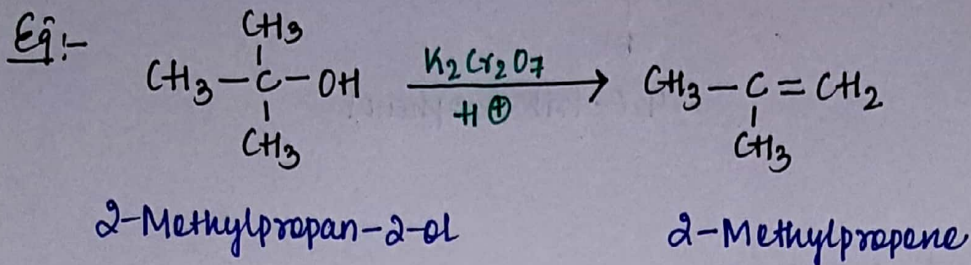 Eg:-
CH3
CH3-C-OH K2Cr2O7 → CH3-C=CH2
H⊕
CH3 CH3
2-Methylpropan-2-ol 2-Methylpropene